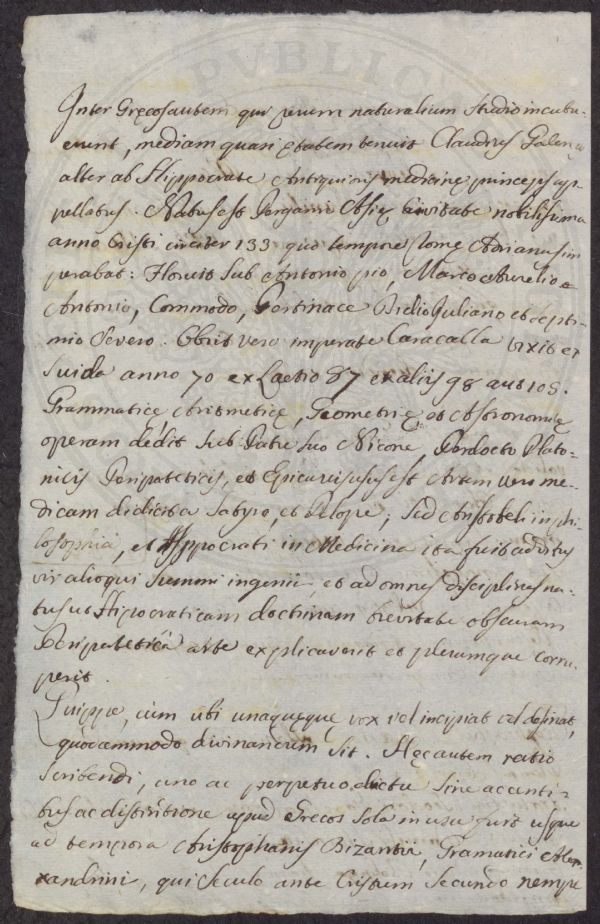 PVBLIC
Inter Gręcos autem qui rerum naturalium studio incubu-
erunt, mediam quasi ętatem tenuit Claudius Galenus
alter ab Hippocrate Antiquioris medicinę princeps ap-
pellatus. Natus est Pergami Asię Civitate nobilissima
anno Cristi circiter 133 quo tempore Romę Adrianus im
perabat: Floruit sub Antonio pio, Marco Aurelio
Antonio, Commodo, Pertinace Didio Juliano et Septi-
mio Severo. Obiit vero imperate Caracalla vixit ex
Suida anno 70 ex Laetio 87 ex aliis 98 aut 108.
Grammaticę Arismetricę, Geometrię, et Astronomię
operam dedit sub Patre suo Nicone, Perdocto Plato-
nicis Peripateticis, et Epicureis usus est Artem vero me-
dicam didicit a Satyro, et Pelope; sed Aristoteli in phi
losophia, et Hyppocrati in Medicina ita fuit additus
vir alioqui summi ingenii, et ad omnes disciplinas na-
tus ut Hipocraticam doctrinam brevitate obscuram
Peripateticâ arte explicaverit et plerumque corru-
perit.
Quippe, cum ubi unaquęque vox vel incipiat vel desinat,
quodammodo divinandum sit. Hęc autem ratio
scribendi, uno ac perpetuo ductu sine accenti-
bus ac distinctione apud Grecos sola in usu fuit usque
ad tempora Aristophanis Bizantii, Gramatici Alex-
xandrini, qui seculo ante Cristum secundo nempe